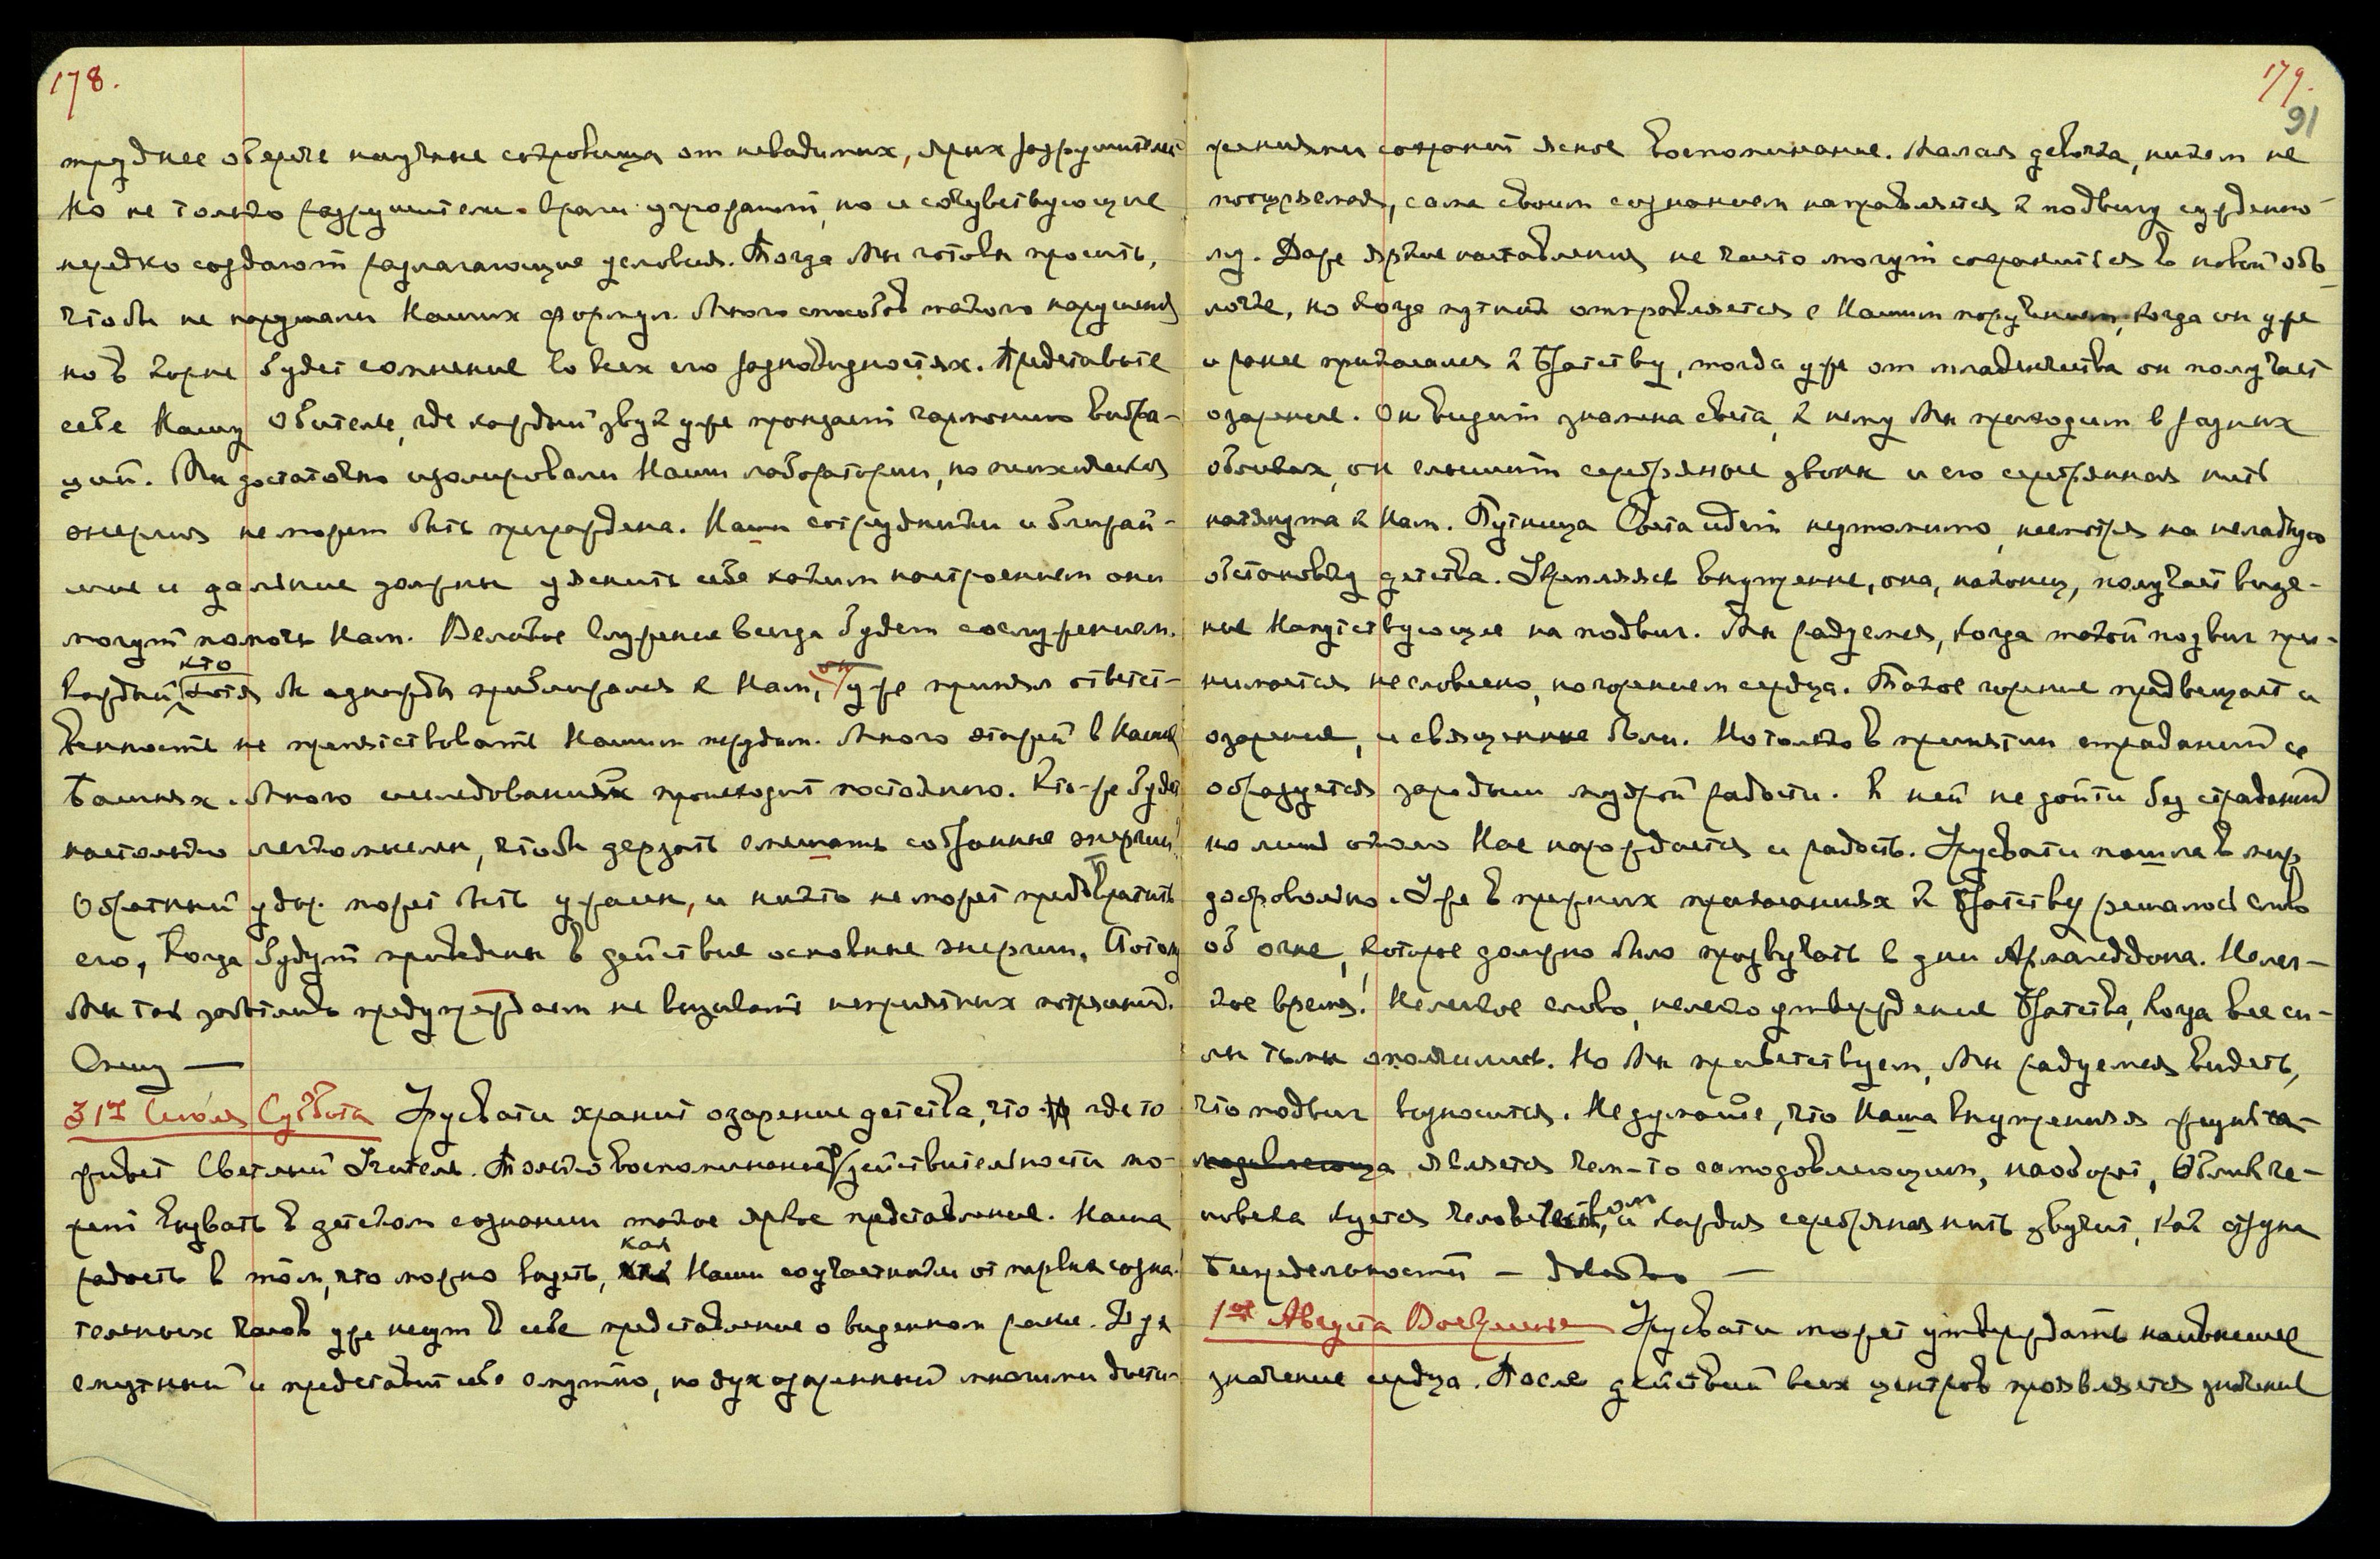 178.
труднее оберечь научные сокровища от невидимых, ярых разрушителей
Но не только разрушители-враги угрожают, но и сочувствующие
нередко создают разлагающие условия. Тогда Мы готовы просить,
чтобы не нарушали Наших формул. Много способов такого нарушения
но в корне будет сомнение во всех его разновидностях. Представьте
себе Нашу Обитель, где каждый звук уже пронзает гармонию вибра-
ций. Мы достаточно изолировали Наши лаборатории, но психическая
энергия не может быть преграждена. Наши сотрудники и ближай-
шие и дальние должны уяснить себе каким настроением они
могут помочь Нам. Великое служение всегда будет сослужением.
Каждый, кто хотя бы однажды приближался к Нам, он уже принял ответст-
венность не препятствовать Нашим трудам. Много энергий в Наших
Башнях. Много исследований происходит постоянно. Кто-же будет
настолько легкомыслен, чтобы дерзать смешать собранные энергии.
Обратный удар может быть ужасен, и никто не может предотвратить
его, когда будут приведены в действие основные энергии. Потому
Мы так заботливо предупреждаем не вызывать неприятных потрясений.
Спешу —
31го Июля Суббота Урусвати хранит озарение детства, что где то
живет Светлый Учитель. Только воспоминание действительности мо-
жет вызвать в детском сознании такое яркое представление. Наша
радость в том, что можно видеть, как Наши соучастники от первых созна-
тельных часов уже несут в себе представление о виденном ранее. Дух
смутный и представит себе смутно, но дух озаренный многими дости-
179.
91
жениями сохранит ясное воспоминание. Малая девочка, никем не
поощряемая, сама своим сознанием направляется к подвигу сужденно-
му. Даже яркие наставления не часто могут сохраниться в новой обо-
лочке, но когда путник отправляется с Нашим поручением, когда он уже
и ранее прикасался к Братству, тогда уже от младенчества он получает
озарение. Он видит знамена света, к нему Мы приходим в разных
обликах, он слышит серебряные звоны и его серебряная нить
натянута к Нам. Путница Света идет неутомимо, несмотря на неладную
обстановку детства. Укрепляясь внутренне, она, наконец, получает виде-
ние Напутствующее на подвиг. Мы радуемся, когда такой подвиг при-
нимается не словесно, но горением сердца. Такое горение предвещает и
озарение, и священные боли. Но только в принятии страданий се
образуется зародыш мудрой радости. К ней не дойти без страданий
но лишь около Нас нарождается и радость. Урусвати пошла в мир
добровольно. Уже в прежних прикасаниях к Братству решалось слово
об огне, которое должно было прозвучать в дни Армагеддона. Нелег-
кое время! Нелегкое слово, нелегко утверждение Братства, когда все си-
лы тьмы ополчились. Но Мы приветствуем, Мы радуемся видеть,
что подвиг возносится. Не думайте, что Наша Внутренняя
является чем-то самодовлеющим, наоборот, Облик че-
ловека куется человечеством, и каждая серебряная нить звучит, как струна
Беспредельности — Довольно —
1ое Августа Воскресенье Урусвати может утверждать наивысшее
значение сердца. После действий всех центров проявляется значение